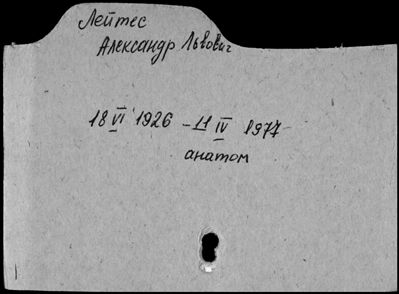 Лейтес
Александр Львович
18 VI 1926 - 11 IV 1977
анатом